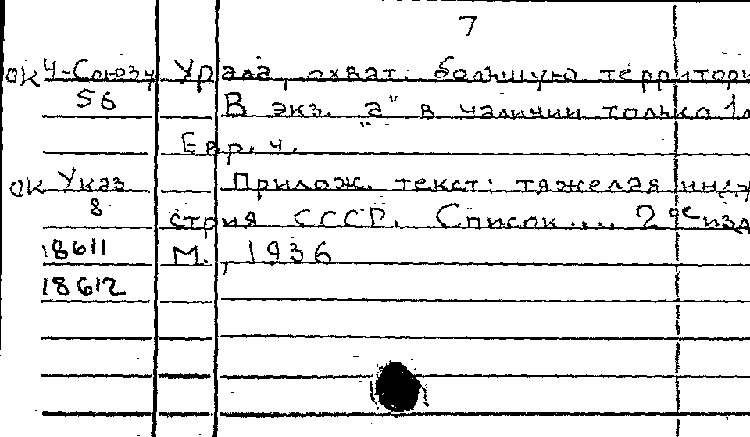 7
ок Ч-Союзу Урала, охват. большую территори
56 В экз. „а" в наличии только 1л
Евр. ч.
ок Указ Прилож. текст: тяжелая инду
8 стрия СССР. Список... 2ое изд
18611 М., 1936
18612